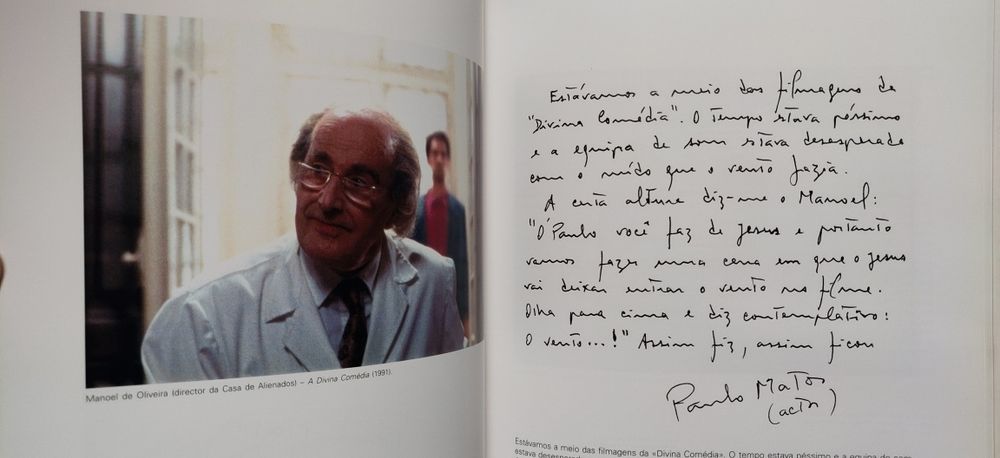 Manoel de Oliveira (director da Casa de Alienados) – A Divina Comédia (1991).
Estávamos a meio das filmagens da
"Divina Comédia". O tempo estava péssimo
e a equipa de som estava desesperada
com o ruído que o vento fazia.
A certa altura diz-me o Manoel:
"Ó Paulo você faz de Jesus e portanto
vamos fazer uma cena em que o Jesus
vai deixar entrar o vento no filme.
Olha para cima e diz contemplativo:
O vento...!" Assim fiz, assim ficou
Paulo Matos
(actor)
Estávamos a meio das filmagens da «Divina Comédia». O tempo estava péssimo e a equipa de som
estava desesperada